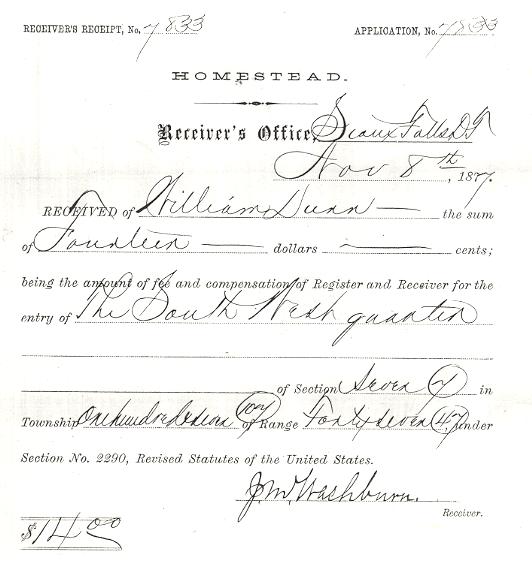 RECEIVER'S RECEIPT, No. 7833 APPLICATION, No. 7833
HOMESTEAD.
Receiver's Office, Sioux Falls D.T.
Nov 8th, 1877.
RECEIVED of William Dunn — the sum
of Fourteen — dollars — cents;
being the amount of fee and compensation of Register and Receiver for the
entry of The South West quarter
of Section Seven (7) in
Township One hundred & seven (107) of Range Forty seven (47) under
Section No. 2290, Revised Statutes of the United States.
J.M. Washburn.
Receiver.
$14.00